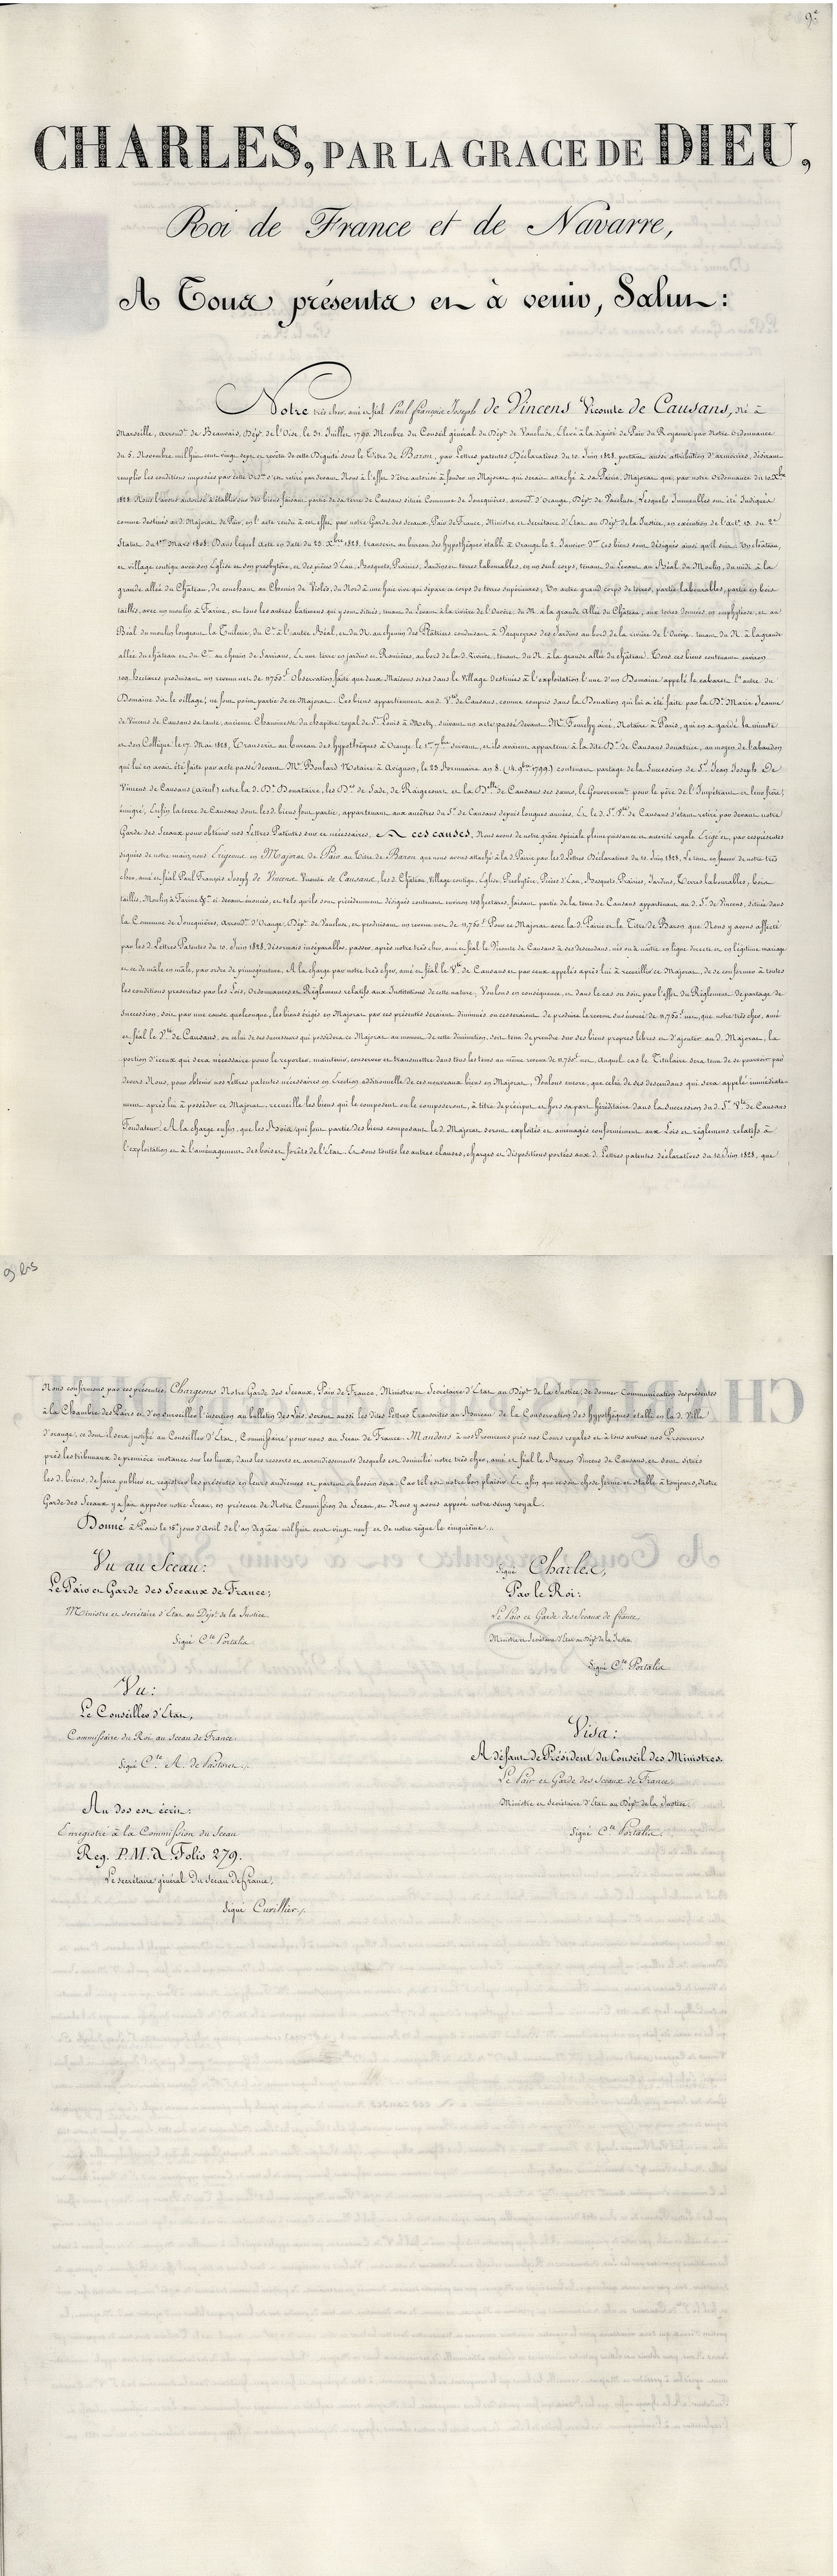 9e
CHARLES, PAR LA GRACE DE DIEU,
Roi de France et de Navarre,
A Tous présents et à venir, Salut:
Notre très cher, amé et féal Paul françois Joseph de Vincens Vicomte de Causans, né à
Marseille, arrondt. de Beauvais, Dépt. de l'Oise, le 31. Juillet 1790. Membre du Conseil général du Dépt. de Vaucluse, Elevé à la dignité de Pair du Royaume par Notre Ordonnance
du 5. Novembre mil huit cent vingt sept et revêtu de cette Dignité sous le Titre de Baron, par Lettres patentes Déclaratives du 10. Juin 1828, portant aussi attribution d'armoiries, désirant
remplir les conditions imposées par cette Ord.ce s'est retiré par devant Nous à l'effet d'être autorisé à fonder un Majorat qui serait attaché à sa Pairie, Majorat que, par notre Ordonnance du 10 Xbre
1828. Nous l'avons autorisé à établir sur des biens faisant partie de sa terre de Causans située Commune de Jonquières, arront. d'Orange, Dépt. de Vaucluse, Lesquels Immeubles ont été Indiqués
comme destinés au d. Majorat de Pair, en l'acte rendu à cet effet par notre Garde des sceaux, Pair de France, Ministre et Secrétaire d'Etat au Dépt. de la Justice, en exécution de l'art. 13. du 2e
Statut du 1er. Mars 1808. Dans lequel Acte en date du 23. Xbre 1828. transcrit au bureau des hypothèques établi à Orange le 2. Janvier der. ces biens sont désignés ainsi qu'il suit. Un château,
et village contigu avec son Eglise et son presbytère, et des pièces d'Eau, Bosquets, Prairies, Jardins et terres labourables, en un seul corps, tenant du Levant au Béal du Moulin, du midi à la
grande allée du Château, du couchant au Chemin de Violès, du Nord à une haie vive qui sépare ce corps de terres supérieures; Un autre grand corps de terres, partie labourables, partie en bois
taillis, avec un moulin à Farine, et tous les autres batimens qui y sont situés, tenant du Levant à la rivière de l'Ouvèze, du M. à la grande Allée du Château, aux terres données en emphytéose, et au
Béal du moulin longeant la Tuilerie, du Ct. à l'autre Béal, et du N. au chemin des Plâtriers conduisant à Vaqueyras des Jardins au bord de la rivière de l'Ouvèze. tenant du N. à la grande
allée du château et du Ct. au chemin de Sarrians, Et une terre en jardins et Ramières, au bord de la d. Rivière, tenant du N. à la grande allé du château; Tous ces biens contenant environ
109. hectares produisant un revenu net de 11750f Observation faite que deux Maisons sises dans le Village destinées à l'exploitation l'une d'un Domaine appelé le cabaret l'autre du
Domaine dit le village; ne font point partie de ce Majorat. Ces biens appartiennent au d. Vte. de Causans, comme compris dans la Donation qui lui a été faite par la De. Marie Jeanne
de Vincens de Causans sa tante, ancienne Chanoinesse du chapitre royal de St. Louis à Metz, suivant un acte passé devant Me. Fourchy ainé, Notaire à Paris, qui en a gardé la minute
et son Collègue le 17. Mai 1828, Transcrit au bureau des hypothèques à Orange le 1er. 7bre suivant, et ils avaient appartenu à la dite De. de Causans donatrice, au moyen de l'abandon
qui lui en avait été fait par acte passé devant Me. Boulard Notaire à Avignon, le 23 Brumaire an 8. (14. 9bre 1799.) contenant partage de la Succession de St. Jean Joseph De
Vincens de Causans (Aïeul) entre la d. De. Donataire, les Des. de Sade, de Raigecourt et la Delle. de Causans ses sœurs, le Gouvernemt. pour le père de l'Impétrant et leur frère,
émigré, Enfin la terre de Causans dont les d. biens font partie, appartenant aux ancêtres du Sr. de Causans depuis longues années. Et le d. Sr. Vte. de Causans s'étant retiré par devant notre
Garde des Sceaux pour obtenir nos Lettres Patentes sur ce nécessaires. A ces causes, Nous avons de notre grâce spéciale pleine puissance et autorité royale Erigé et, par ces présentes
signées de notre main, nous Erigeons en Majorat de Pair au Titre de Baron que nous avons attaché à la d. Pairie par les d. Lettres Déclaratives du 10. Juin 1828, Le tout en faveur de notre très
cher, amé et féal Paul François Joseph de Vincens Vicomte de Causans, les d. Château, Village contigu, Eglise, Presbytère, Pièces d'Eau, Bosquets, Prairies, Jardins, Terres labourables, bois
taillis, Moulin à Farine &a. ci-devant énoncés, et tels qu'ils sont précédemment désignés contenant environ 109 hectares, faisant partie de la terre de Causans appartenant au d. Sr. de Vincens, située dans
la Commune de Joncquières, Arront. d'Orange, Dépt. de Vaucluse, et produisant un revenu net de 11,750f Pour ce Majorat avec la d. Pairie et le Titre de Baron que Nous y avons affecté
par les d. Lettres Patentes du 10. Juin 1828, désormais inséparables, passer, après notre très cher, amé et féal le Vicomte de Causans à ses descendans, nés ou à naître en ligne directe et en légitime mariage
et ce de mâle en mâle, par ordre de primogéniture. A la charge par notre très cher, amé et féal le Vte. de Causans et par ceux appelés après lui à recueillir ce Majorat, de se conformer à toutes
les conditions prescrites par les Lois, Ordonnances et Règlemens relatifs aux Institutions de cette nature; Voulons en conséquence, et dans le cas où soit par l'effet du Règlement de partage de
Succession, soit par une cause quelconque, les biens érigés en Majorat par ces présentes seraient diminués ou cesseraient de produire le revenu sus énoncé de 11,750f net, que notre très cher, amé
et féal le d. Vte. de Causans, ou celui de ses successeurs qui possèdera ce Majorat au moment de cette diminution, soit tenu de prendre sur ses biens propres libres et d'ajouter au d. Majorat, la
portion d'iceux qui sera nécessaire pour le reporter, maintenir, conserver et transmettre dans tous les tems au même revenu de 11,750f net. Auquel cas le Titulaire sera tenu de se pourvoir par
devers Nous, pour obtenir nos lettres patentes nécessaires en Erection additionnelle de ces nouveaux biens en Majorat; Voulons encore, que celui de ses descendans qui sera appelé immédiate-
ment après lui à posséder ce Majorat, recueille les biens qui le composent ou le composeront, à titre de préciput et hors sa part héréditaire dans la Succession du d. Sr. Vte. de Causans
Fondateur. A la charge enfin, que les Bois qui font partie des biens composant le d. Majorat seront exploités et aménagés conformément aux Lois et règlemens relatifs à
l'exploitation et à l'aménagement des bois et forêts de l'Etat. Et sous toutes les autres clauses, charges et dispositions portées aux d. Lettres patentes déclaratives du 10 Juin 1828, que
9 bis
Nous confirmons par ces présentes. Chargeons Notre Garde des Sceaux, Pair de France, Ministre et Secrétaire d'Etat au Dépt. de la Justice, de donner Communication des présentes
à la Chambre des Pairs et d'en surveiller l'insertion au bulletin des Lois, seront aussi les dites Lettres Transcrites au Bureau de la Conservation des hypothèques établi en la d. Ville
d'orange, ce dont il sera justifié au Conseiller d'Etat, Commissaire pour nous au Sceau de France. Mandons à nos Procureurs près nos Cours royales et à tous autres nos Procureurs
près les tribunaux de première instance sur les lieux, dans les ressorts et arrondissements desquels est domicilié notre très cher, amé et féal le Baron Vincens de Causans, et sont situés
les d. biens, de faire publier et registrer les présentes en leurs audiences et partout où besoin sera; Car tel est notre bon plaisir. Et afin que ce soit chose ferme et stable à toujours, Notre
Garde des Sceaux y a fait apposer notre Sceau, en présence de Notre Commission du Sceau, et Nous y avons apposé notre seing royal.
Donné à Paris le 15e jour d'Avril de l'an de grâce mil huit cent vingt neuf et de notre règne le cinquième.
Vu au Sceau:
Le Pair et Garde des Sceaux de France;
Ministre et secrétaire d'Etat au Dépt. de la Justice.
Signé Cte Portalis
Signé Charles,
Par le Roi:
Le Pair et Garde des Sceaux de france,
Ministre et Secrétaire d'Etat au Dépt. de la Justice.
Signé Cte Portalis
Vu:
Le Conseiller d'Etat,
Commissaire du Roi au Sceau de France.
Signé Cte. A. de Pastoret
Visa:
A défaut de Président du Conseil des Ministres.
Le Pair et Garde des Sceaux de France,
Ministre et secrétaire d'Etat au Dépt. de la Justice.
Signé Cte Portalis.
Au dos est écrit:
Enregistré à la Commission du Sceau
Reg. P.M. & Folio 279.
Le secrétaire général du Sceau de france,
Signé Cuvillier